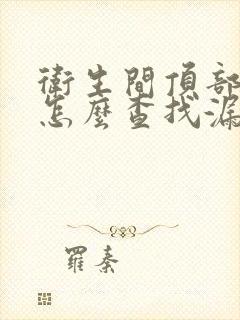 衛生間頂部
怎麼查找漏
羅秦